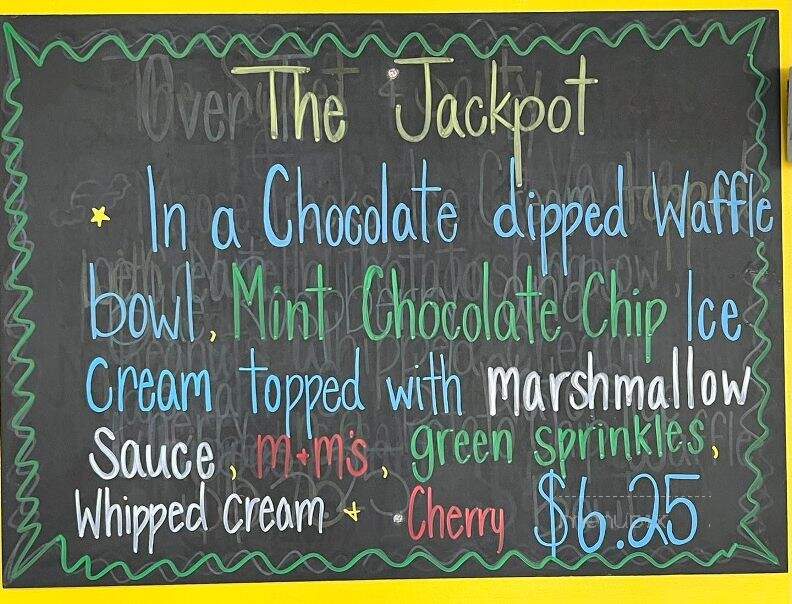 Over The Jackpot
In a Chocolate dipped Waffle
bowl, Mint Chocolate Chip Ice
Cream topped with marshmallow
Sauce, m+m's, green sprinkles,
Whipped Cream + Cherry $6.25